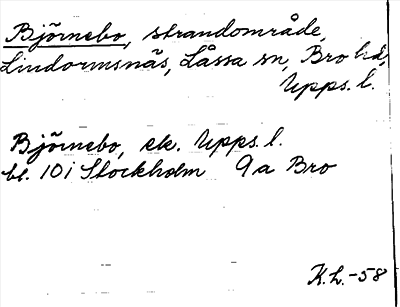 Björnebo, strandområde,
Lindormsnäs, Låssa sn, Bro hd,
Upps. l.
Björnebo, ek. Upps. l.
bl. 10 i Stockholm 9a Bro
K.L.-58